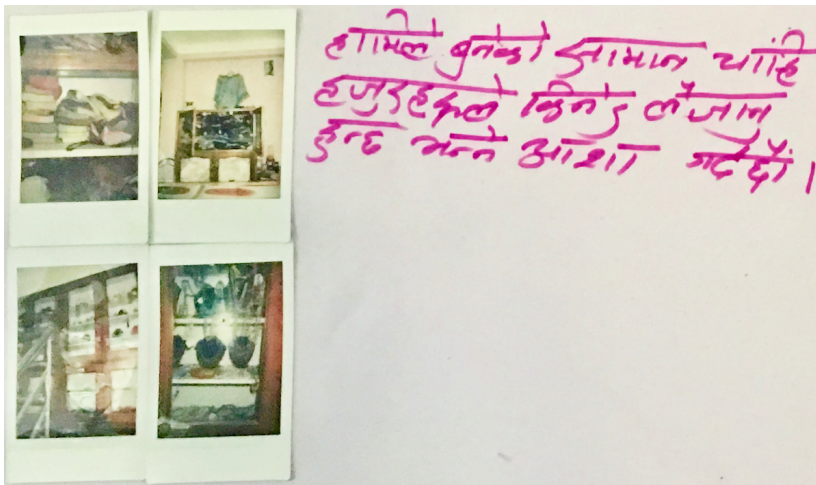 हामिले बुनेको सामान चांहि
हजुरहरूले किनेर लैजानु
हुन्छ भन्ने आशा गर्दछौं ।